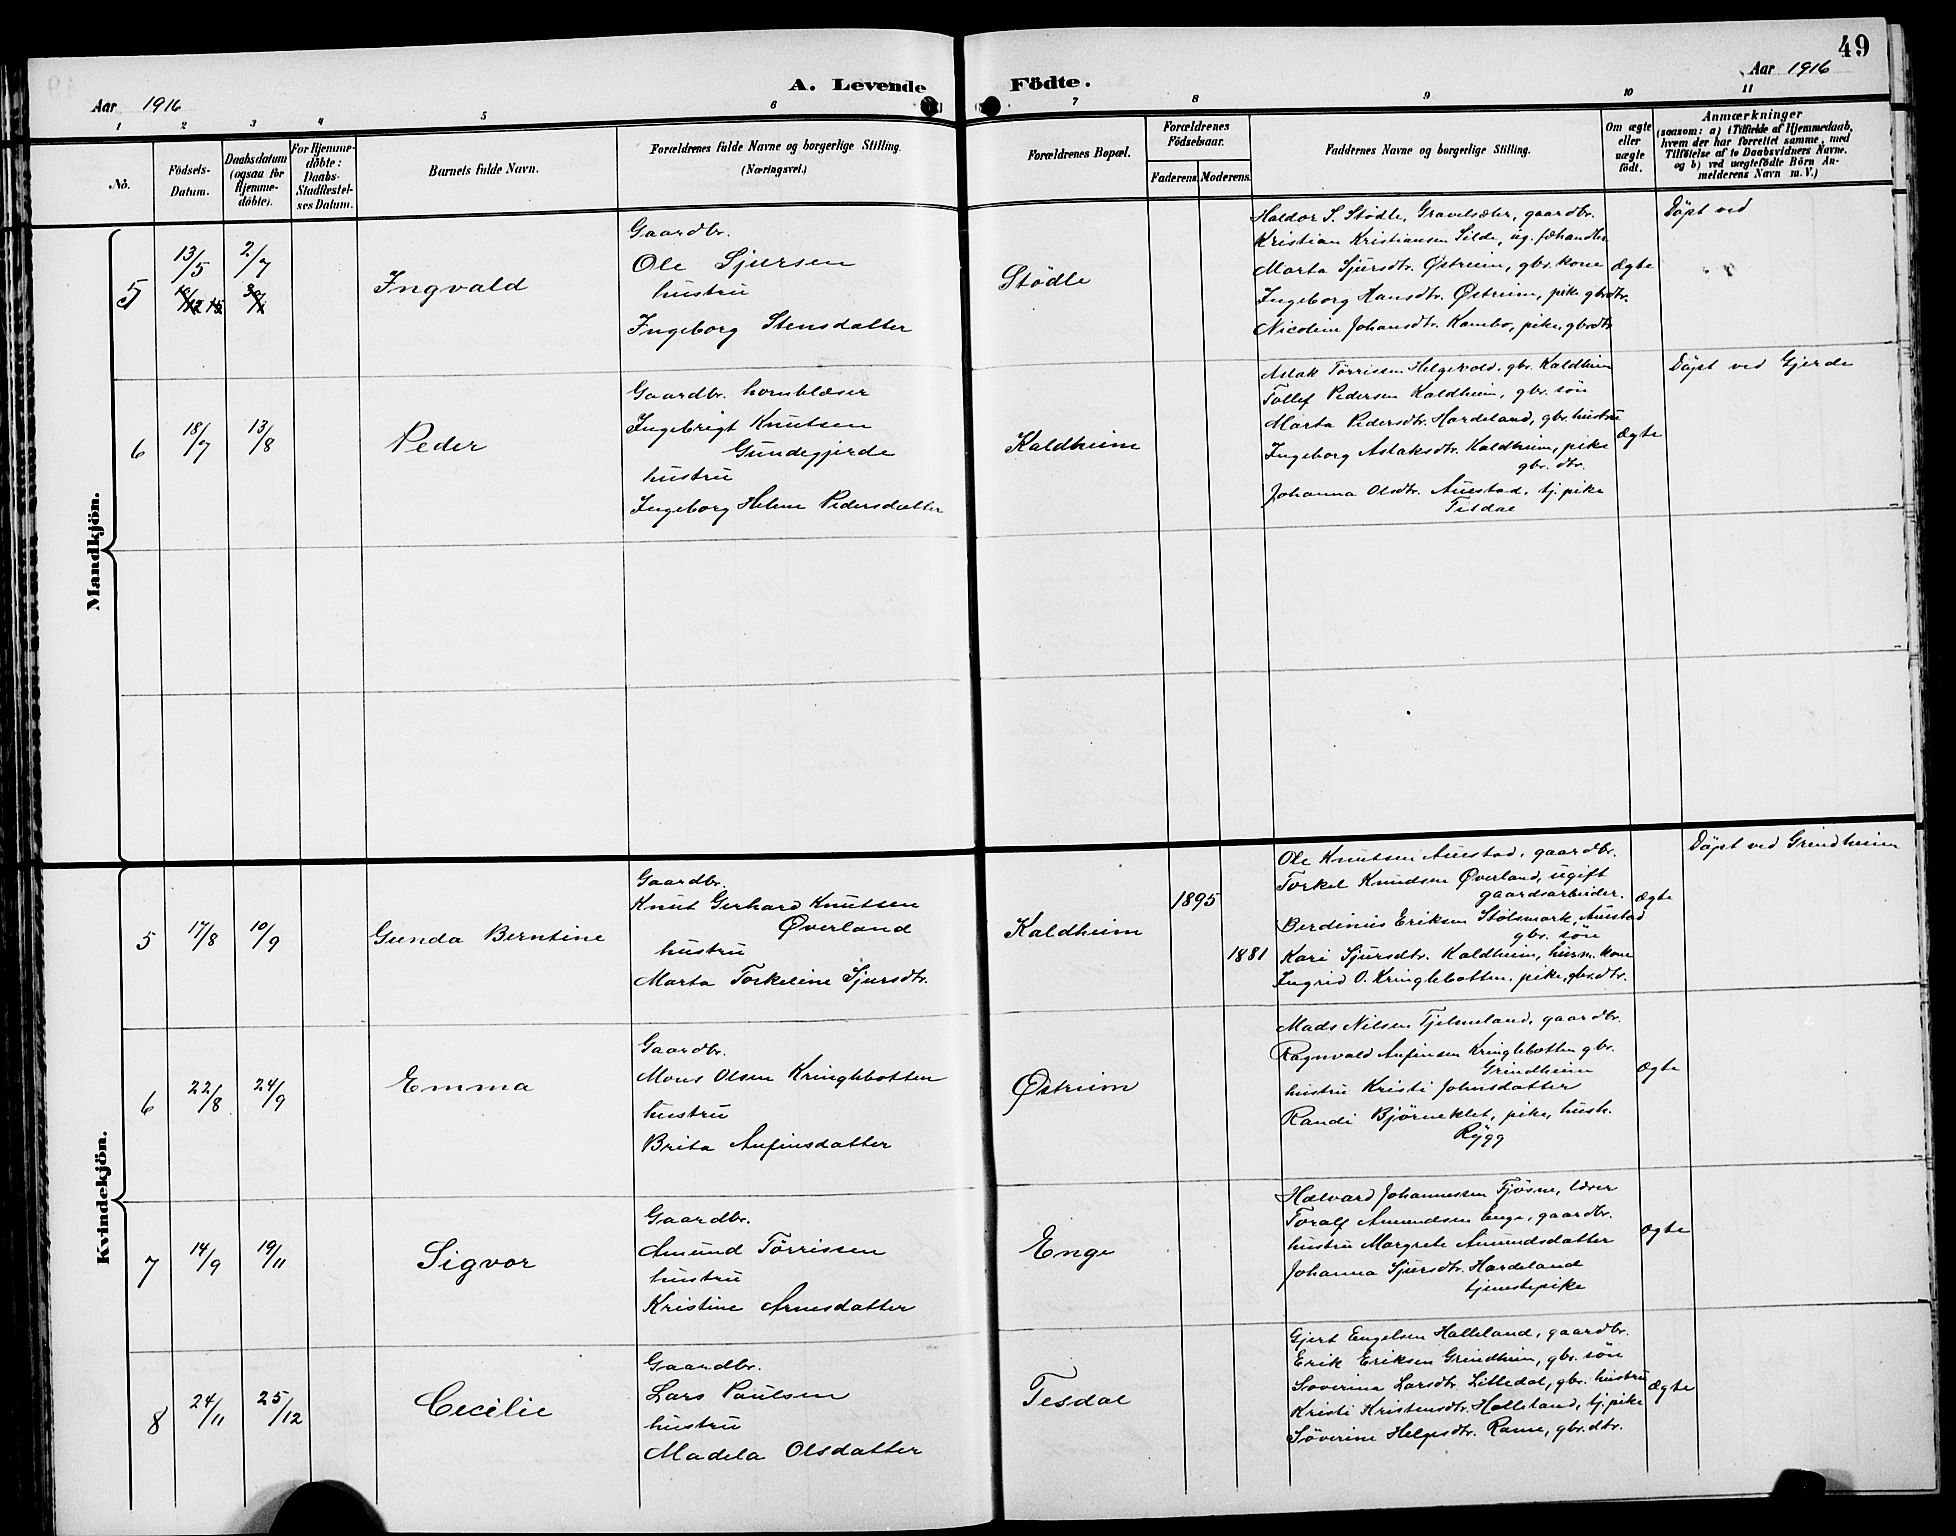 49
Aar 1916
A. Levende
Födte.
Aar 1916
1
2
3
4
5
6
7
8
9
10
11
No.
Födsels-
Datum.
Daabsdatum
(ogsaa for
Hjemme-
döbte).
For Hjemme-
döbte:
Daabs-
Stadfæstel-
ses Datum.
Barnets fulde Navn.
Forældrenes fulde Navne og borgerlige Stilling.
(Næringsvei.)
Forældrenes Bopæl.
Forældrenes
Födselsaar.
Faderens.
Moderens.
Faddernes Navne og borgerlige Stilling.
Om ægte
eller
uægte
født.
Anmærkninger
(saasom: a) i Tilfælde af Hjemmedaab,
hvem der har forrettet samme, med
Tilföielse af to Daabsvidners Navne.
og b) ved uægtefödte Börn An-
melderens Navn m. V.)
Mandkjön.
5
13/5
2/7
Ingvald
Gaardbr.
Ole Sjursen
hustru
Ingeborg Stensdatter
Stödle
Haldor S. Stødle, Gravelsæter, gaardbr.
Kristian Kristiansen Silde, ug. fæhandler
Marta Sjursdtr. Østreim, gbr. kone
Ingeborg Hansdtr. Østreim, pike gbrdtr.
Nicoline Johansdtr. Kambo, pike, gbrdtr
Ægte
Døpt ved
6
18/7
13/8
Peder
Gaardbr. hornblæser
Ingebrigt Knutsen
Gundegjerde
hustru
Ingeborg Helene Pedersdatter
Kaldheim
Aslak Tørrissen Helgevold, gbr. Kaldheim
Tollef Pedersen Kaldheim, gbr. søn
Marta Pedersdtr. Hardeland, gbr. hustru
Ingeborg Aslaksdtr. Kaldheim, pike
gbr. dtr.
Johanna Olsdtr. Auestad, tj. pike
Tesdal
Ægte
Døpt ved Gjerde
Kvindekjön.
5
17/8
10/9
Gunda Berntine
Gaardbr.
Knut Gerhard Knutsen
Øverland
hustru
Marta Torkeline Sjursdtr.
Kaldheim
1895
1881
Ole Knutsen Auestad, gaardbr.
Torkel Knudsen Øverland, ugift
gaardsarbeider.
Berdinius Eriksen Stølsmark, Auestad
gbr. søn
Kari Sjursdtr. Kaldheim, husm. kone
Ingrid O. Kringlebotten, pike, gbr.dtr.
Ægte
Døpt ved Grindheim
6
22/8
24/9
Emma
Gaardbr.
Mons Olsen Kringlebotten
hustru
Brita Anfinsdatter
Østreim
Mads Nilsen Tjelmeland, gaardbr.
Ragnvald Anfinsen Kringlebotten gbr.
Grindheim
hustru Kristi Johnsdatter
Randi Bjørneklet, pike, hush.
Rygg
Ægte
7
14/9
19/11
Sigvor
Gaardbr.
Amund Tørrissen
hustru
Kristine Arnesdatter
Enge
Halvard Johannessen Tjøsne, lærer
Toralf Amundsen Enge, gaardbr.
hustru Margrete Amundsdatter
Johanna Sjursdtr. Hardeland
tjenestepike
Ægte
8
24/11
25/12
Cecilie
Gaardbr.
Lars Paulsen
hustru
Madela Olsdatter
Tesdal
Gjert Engelsen Halleland, gaardbr.
Erik Eriksen Grindheim, gbr. søn
Soverina Larsdtr. Litledal, gbr. hustru
Kristi Kristensdtr. Halleland, tj. pike
Søverine Helgesdtr. Rame, gbr. dtr.
Ægte